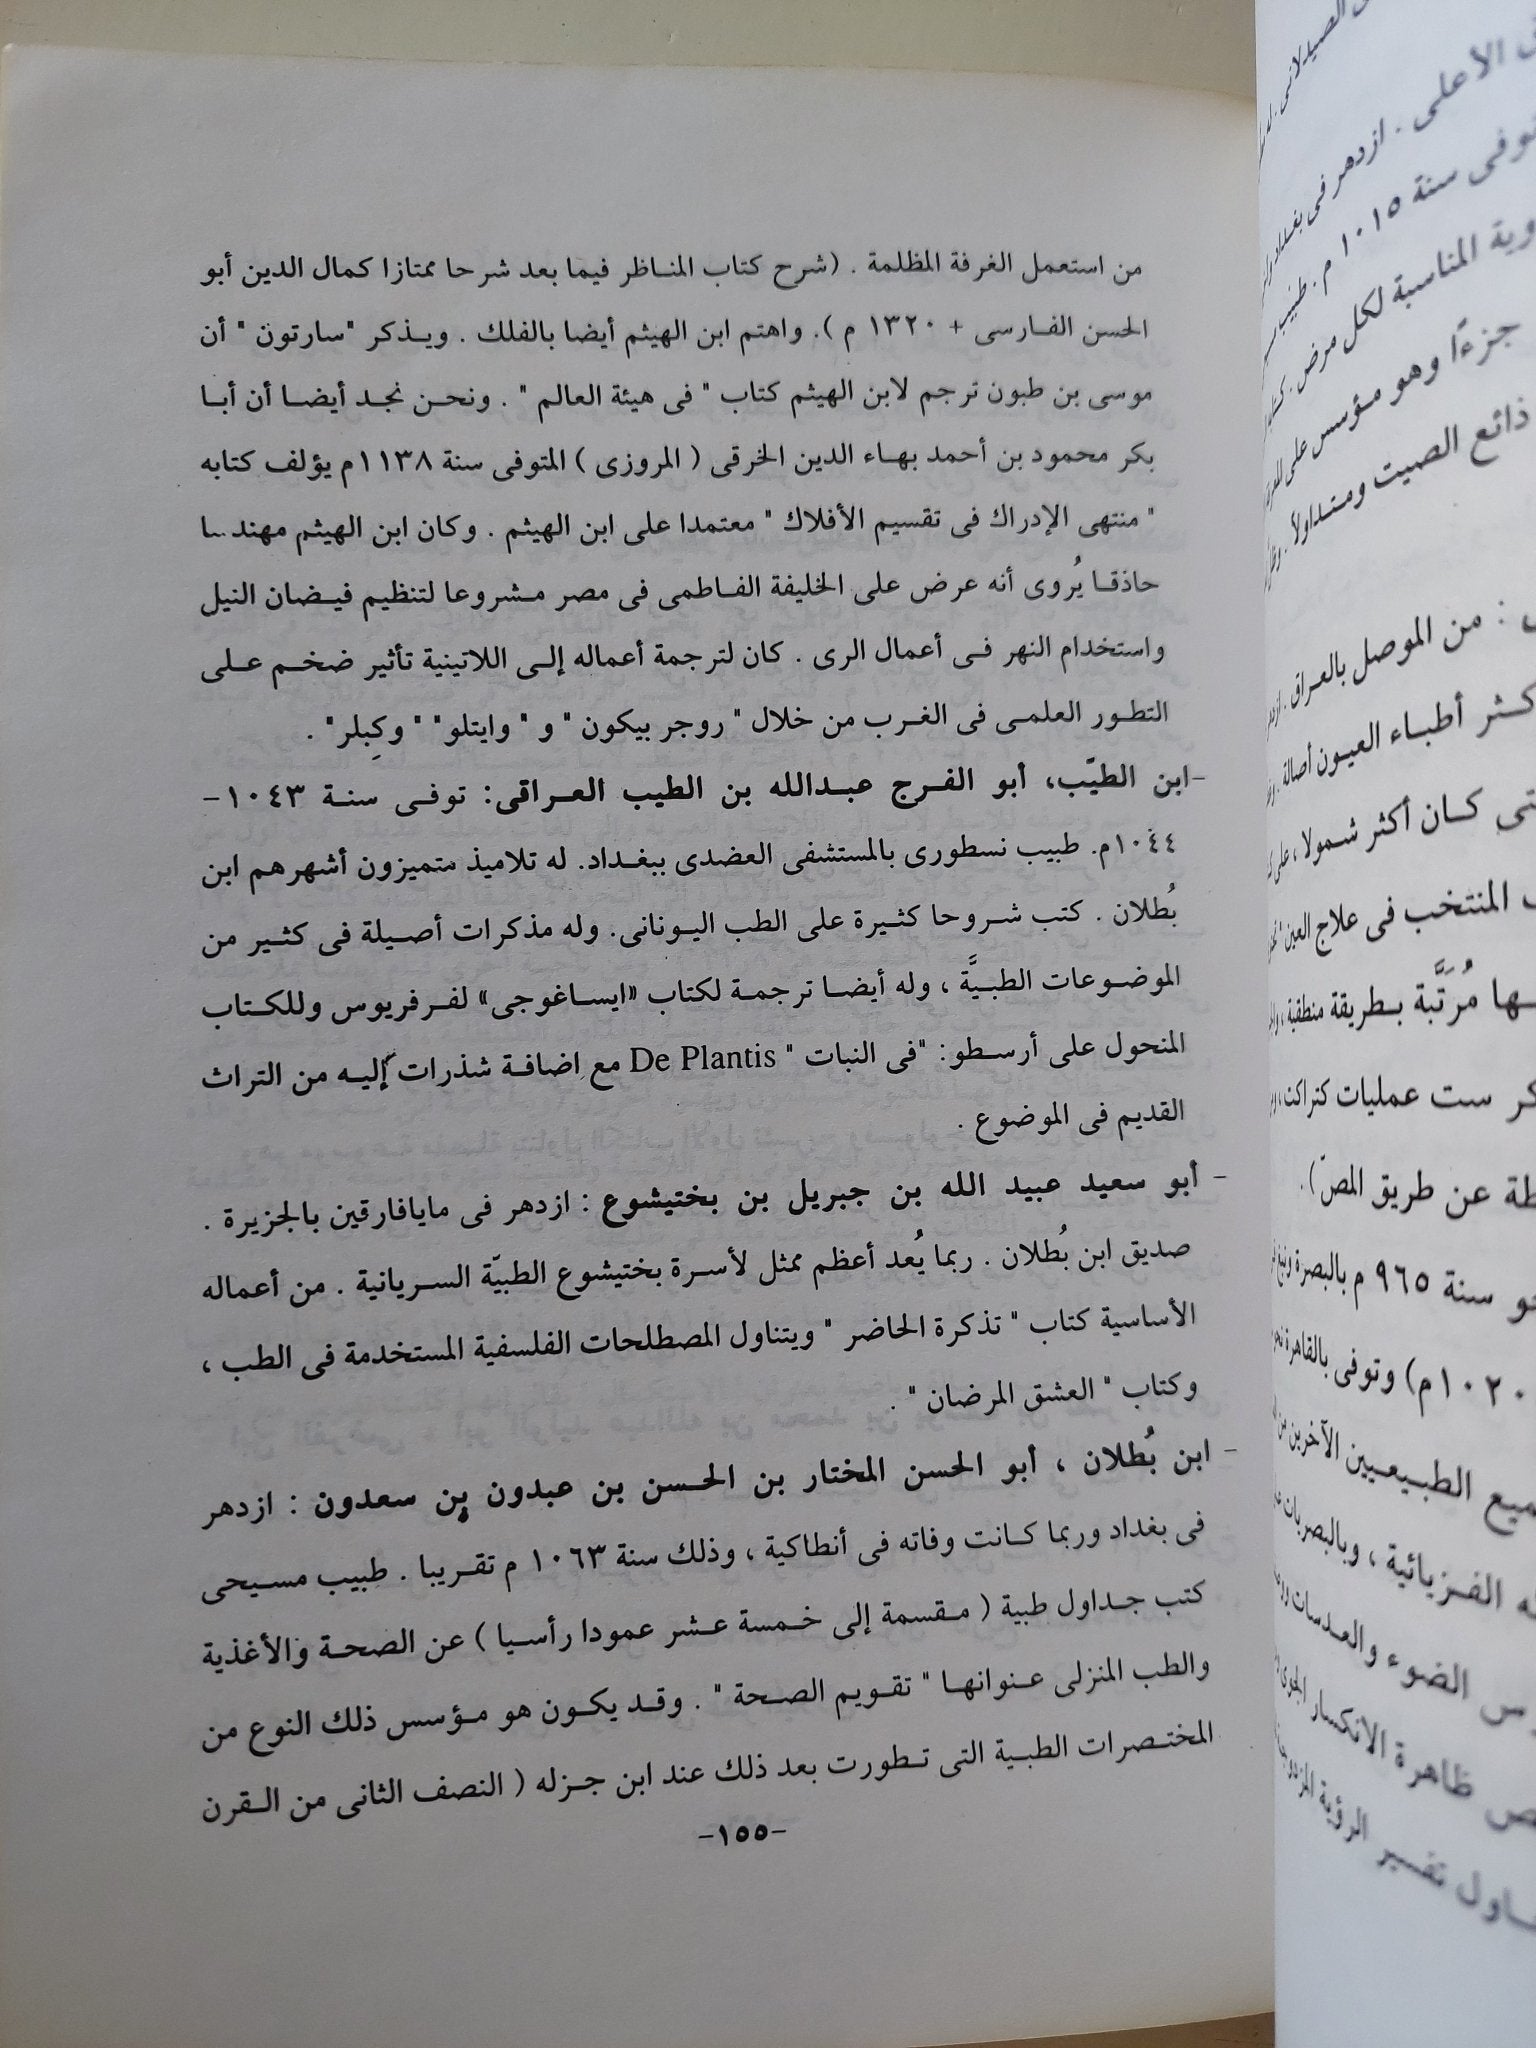 من استعمل الغرفة المظلمة . (شرح كتاب المناظر فيما بعد شرحا ممتازا كمال الدين أبو
الحسن الفارسى + ١٣٢٠ م ). واهتم ابن الهيثم أيضا بالفلك . ويذكر "سارتون " أن
موسى بن طبون ترجم لابن الهيثم كتاب " فى هيئة العالم " . ونحن نجد أيضا أن أبا
بكر محمود بن أحمد بهاء الدين الخرقى ( المروزى ) المتوفى سنة ١١٣٨م يؤلف كتابه
" منتهى الإدراك فى تقسيم الأفلاك " معتمدا على ابن الهيثم . وكان ابن الهيثم مهندسا
حاذقا يُروى أنه عرض على الخليفة الفاطمى فى مصر مشروعا لتنظيم فيضان النيل
واستخدام النهر فى أعمال الرى . كان لترجمة أعماله إلى اللاتينية تأثير ضخم على
التطور العلمى فى الغرب من خلال " روجر بيكون " و " وايتلو" " وكِبلر" .
-ابن الطيّب، أبو الفرج عبدالله بن الطيب العراقى: توفى سنة ١٠٤٣-
١٠٤٤م. طبيب نسطورى بالمستشفى العضدى ببغداد. له تلاميذ متميزون أشهرهم ابن
بُطلان . كتب شروحا كثيرة على الطب اليونانى. وله مذكرات أصيلة فى كثير من
الموضوعات الطبيَّة ، وله أيضا ترجمة لكتاب «ايساغوجى» لفرفريوس وللكتاب
المنحول على أرسطو: "فى النبات " De Plantis مع اضافة شذرات إليه من التراث
القديم فى الموضوع .
- أبو سعيد عبيد الله بن جبريل بن بختيشوع : ازدهر فى مايافارقين بالجزيرة .
صديق ابن بُطلان . ربما يُعد أعظم ممثل لأسرة بختيشوع الطبيّة السريانية . من أعماله
الأساسية كتاب " تذكرة الحاضر " ويتناول المصطلحات الفلسفية المستخدمة فى الطب ،
وكتاب " العشق المرضان " .
- ابن بُطلان ، أبو الحسن المختار بن الحسن بن عبدون بن سعدون : ازدهر
فى بغداد وربما كانت وفاته فى أنطاكية ، وذلك سنة ١٠٦٣ م تقريبا . طبيب مسيحى
كتب جداول طبية ( مقسمة إلى خمسة عشر عمودا رأسيا ) عن الصحة والأغذية
والطب المنزلى عنوانها " تقويم الصحة " . وقد يكون هو مؤسس ذلك النوع من
المختصرات الطبية التى تطورت بعد ذلك عند ابن جزله ( النصف الثانى من القرن
-١٥٥-
الصيدلانى
الأعلى . ازدهر فى بغداد
توفى سنة ١٠١٥ م . طبيب
المناسبة لكل مرض .
جزءًا وهو مؤسس على
ذائع الصيت ومتداولاً .
: من الموصل بالعراق .
أطباء العيون أصالة .
كان أكثر شمولا ،
المنتخب فى علاج العين
مُرَتَّبة بطريقة منطقية ،
ست عمليات كتراكت ،
عن طريق المصّ).
سنة ٩٦٥ م بالبصرة
١٠٢٠م) وتوفى بالقاهرة
الطبيعيين الآخرين
الفزيائية ، وبالبصريات
الضوء والعدسات
ظاهرة الانكسار الجوى
تفسير الرؤية المزدوجة